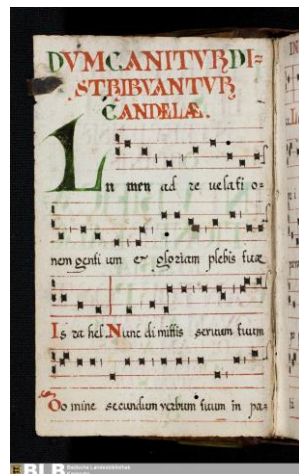 DVM CANITVR DI=
STRIBVANTVR
CANDELÆ.
Lu men ad re uelati o=
nem genti um & gloriam plebis tuæ
Is ra hel. Nunc dimittis seruum tuum
Do mine secundum verbum tuum in pa=
BLB Badische Landesbibliothek